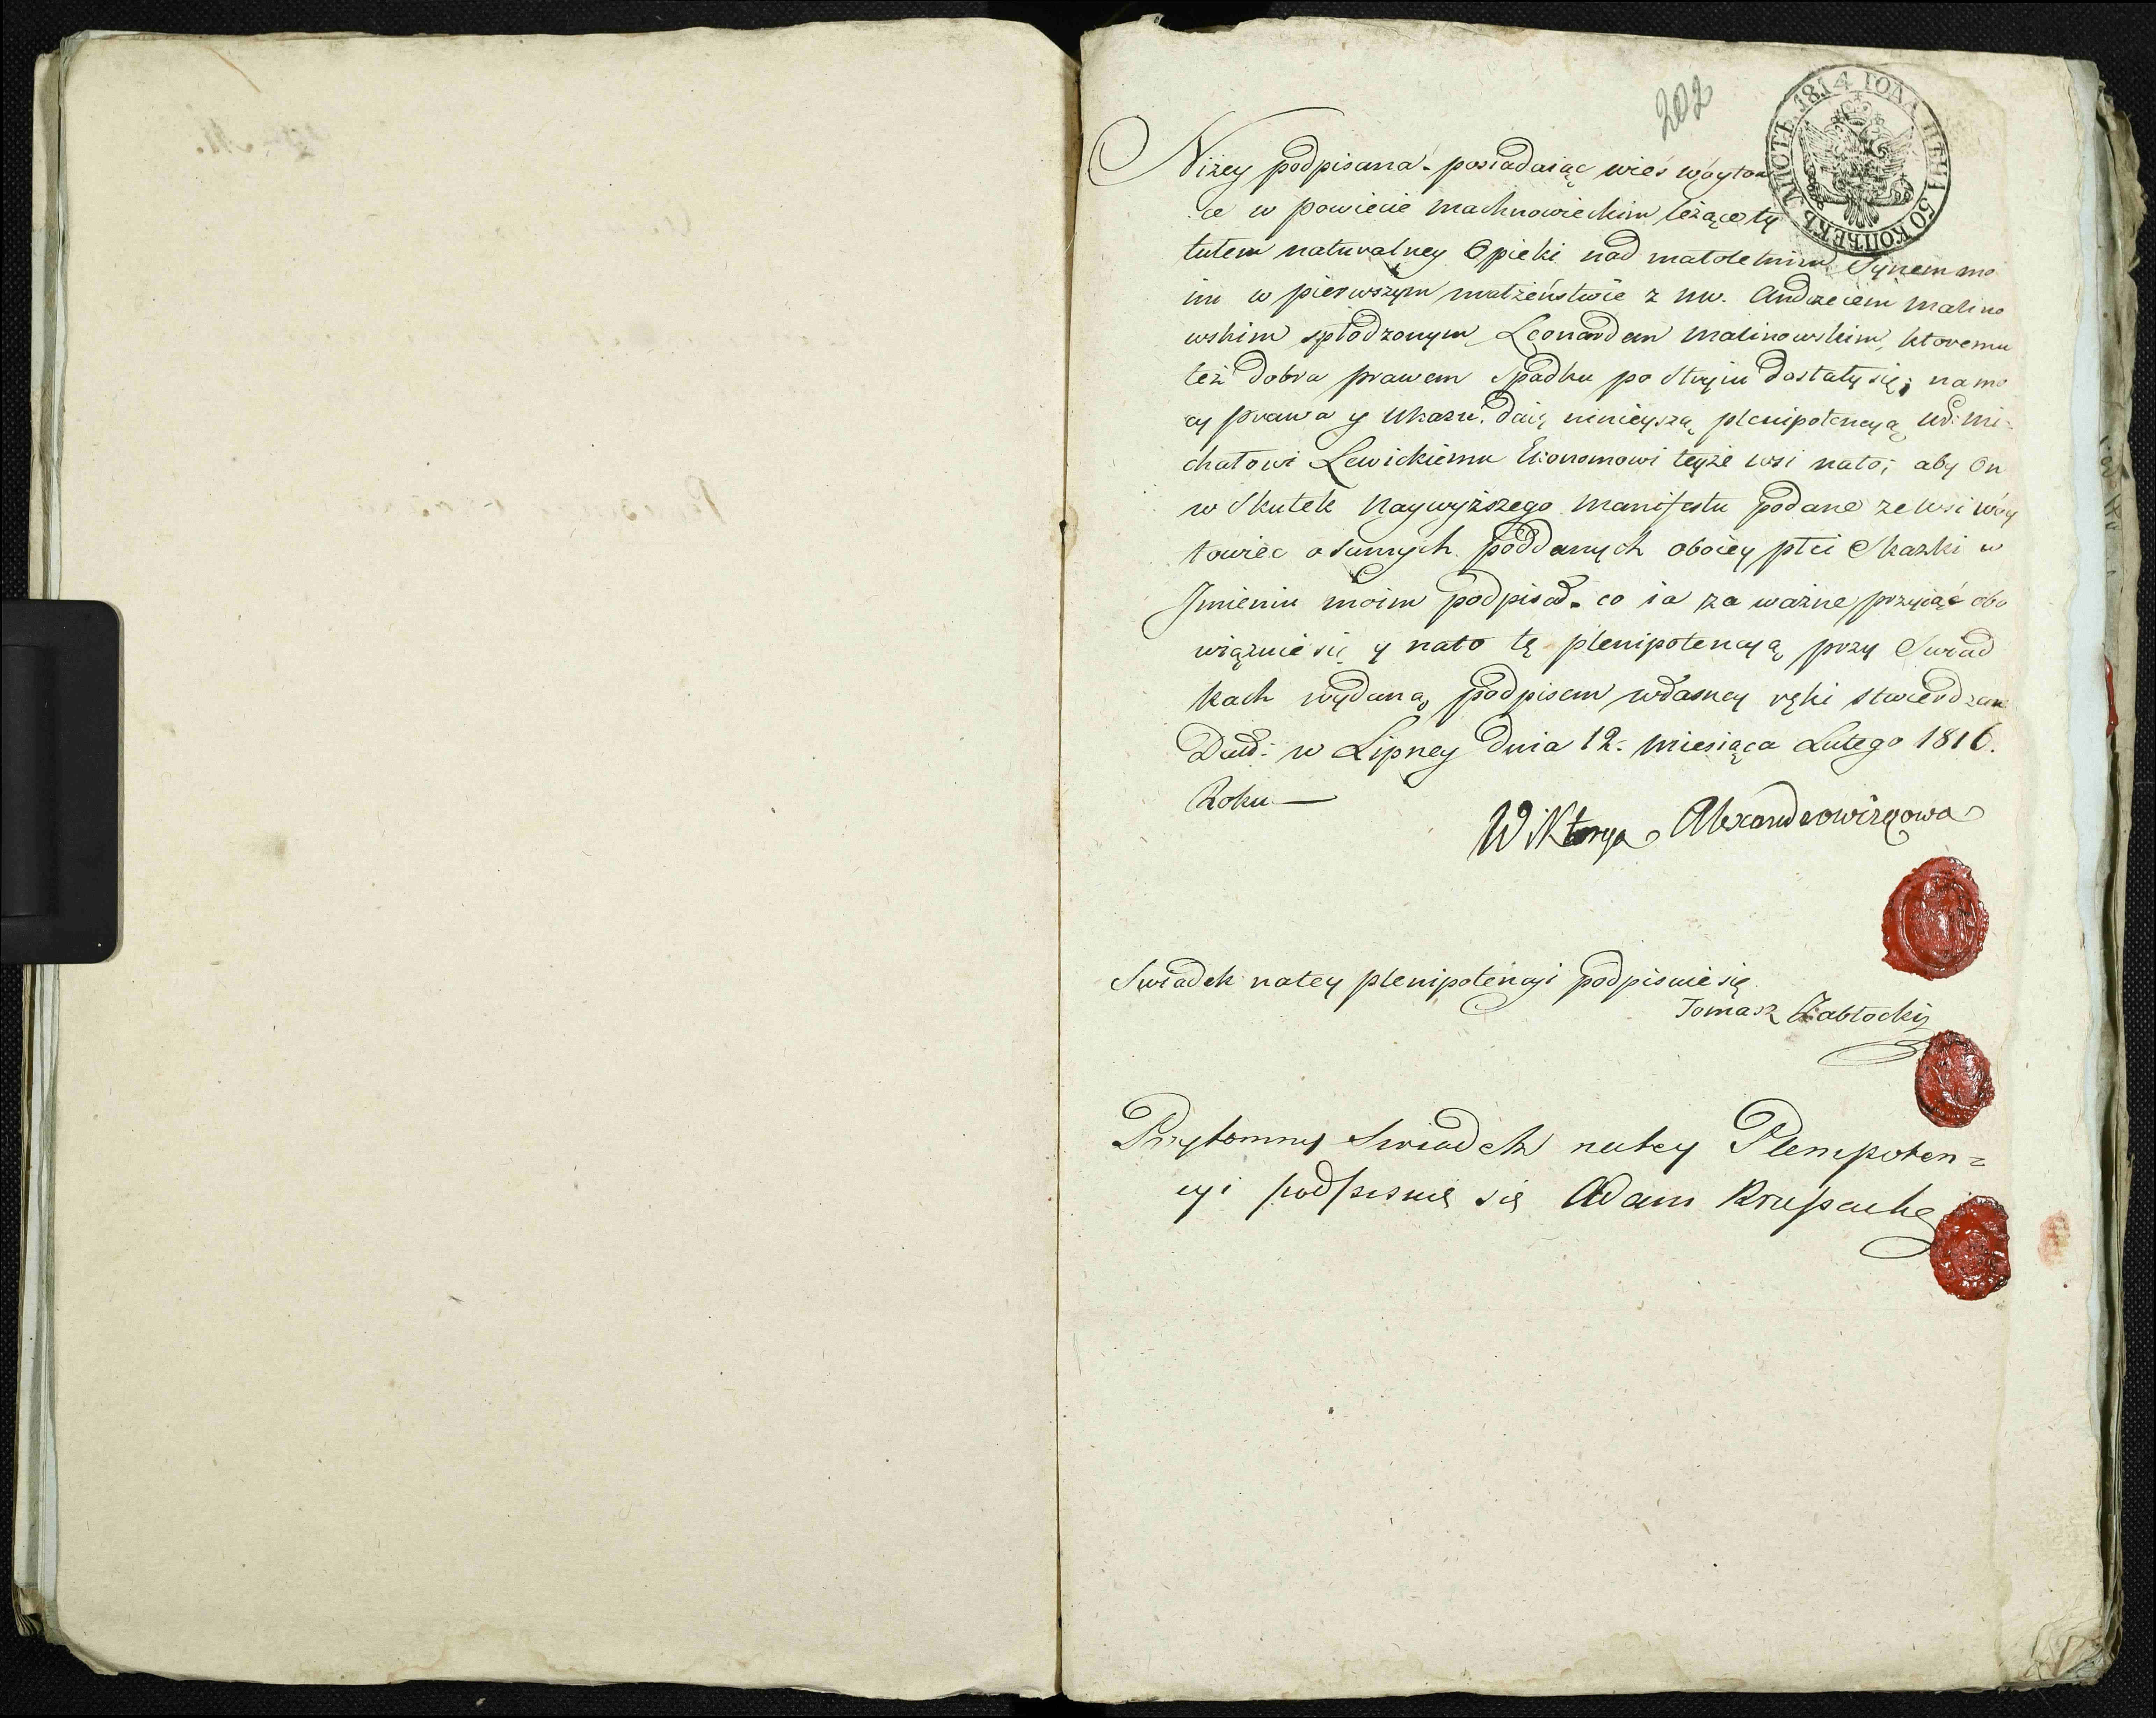 202
ЛИСТЪ 1814 ГОДА ЦѢНА 50 КОПѢЕКЪ
Niżey podpisana posiadaiąc wieś Woytow
ce w powiecie Machnowieckim leżące ty
tułem naturalney Opieki nad małoletnim Synem mo
im w pierwszym małżeństwie z nw. Andrzeiem Malino
wskim spłodzonym Leonardem Malinowskim, ktoremu
też Dobra prawem Spadku po Stryiu dostały się; na mo
cy prawa y Ukazu. Daię ninieyszą plenipotencyą Ur: Mi-
chałowi Lewickiemu Ekonomowi teyże wsi nato; aby On
w Skutek Naywyższego Manifestu podane ze wsi Woy
towiec o Summych poddanych oboiey płci Skazki w
Jmieniu moim podpisał. co ia za ważne przyiąć obo
wiązuie się y nato tę plenipotencyą przy Swiad
kach wydaną podpisem własney ręki stwierdzam
Datt: w Lipney Dnia 12. Miesiąca Lutego 1816.
Roku —
Wiktorya Alexandrowiczowa
Swiadek natey plenipotencyi podpisuie się
Tomasz Zabłocki
Przytomny Swiadek natey Plenipoten=
cyi podpisuię się Adam